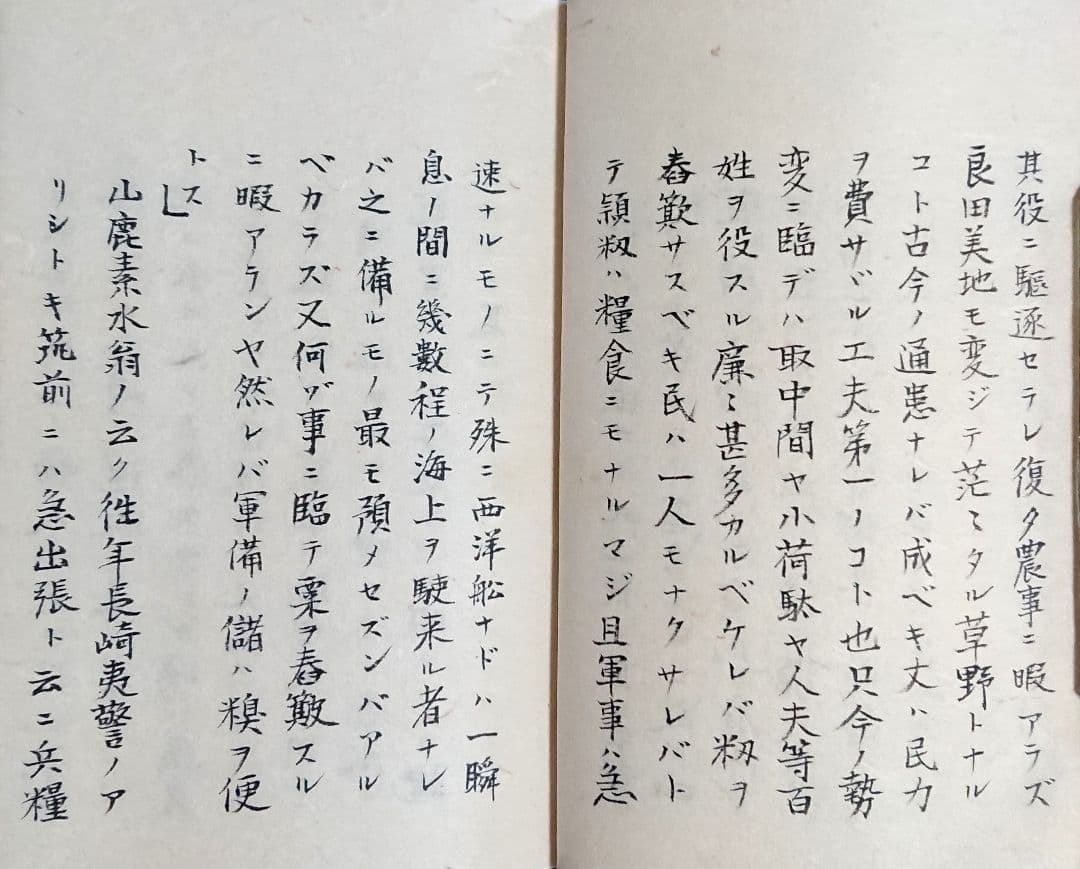 其役ニ驅逐セラレ復タ農事ニ暇アラズ
良田美地モ変ジテ茫〻タル草野トナル
コト古今ノ通患ナレバ成ベキ丈ハ民力
ヲ費サヾル工夫第一ノコト也只今ノ勢
変ニ臨デハ取中間ヤ小荷駄ヤ人夫等百
姓ヲ役スル廉〻甚多カルベケレバ籾ヲ
舂簸サスベキ民ハ一人モナクサレバト
テ頴籾ハ糧食ニモナルマジ且軍事ハ急
速ナルモノニテ殊ニ西洋舩ナドハ一瞬
息ノ間ニ幾數程ノ海上ヲ駛来ル者ナレ
バ之ニ備ルモノ最モ預メセズンバアル
ベカラズ又何ゾ事ニ臨テ粟ヲ舂簸スル
ニ暇アランヤ然レバ軍備ノ儲ハ糗ヲ便
トス」
山鹿素水翁ノ云ク徃年長崎夷警ノア
リシトキ筑前ニハ急出張ト云ニ兵糧